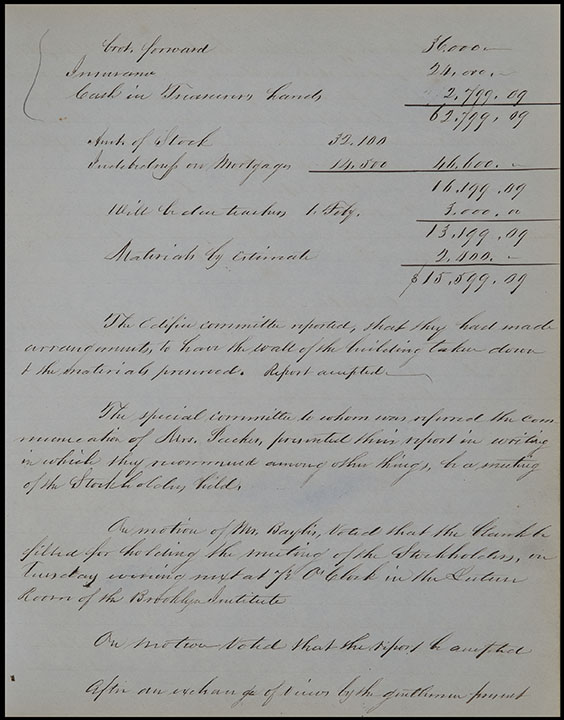 Brot. forward 36.000.—
Insurance 24.000.—
Cash in Treasurers hands 2.799.09
62.799.09
Amt. of Stock 32.100
Indebtedness on Mortgages 14.500 46.600.—
16.199.09
Will be due teachers 1. Feby. 3.000.00
13.199.09
Materials by Estimate 2.400.—
$15.599.09
The Edifice committee reported, that they had made
arrangements, to have the wall of the building taken down
& the materials preserved. Report accepted.
The special committee to whom was referred the com
munication of Mrs. Peecher, presented their report in writing
in which they recommend among other things, be a meeting
of the Stockholders held.
On motion of Mr. Baylis, Voted that the blank be
filled for holding the meeting of the Stockholders, on
Tuesday evening next at 7½ O'Clock in the Lecture
Room of the Brooklyn Institute
On motion Voted that the report be accepted
After an exchange of views by the gentlemen present